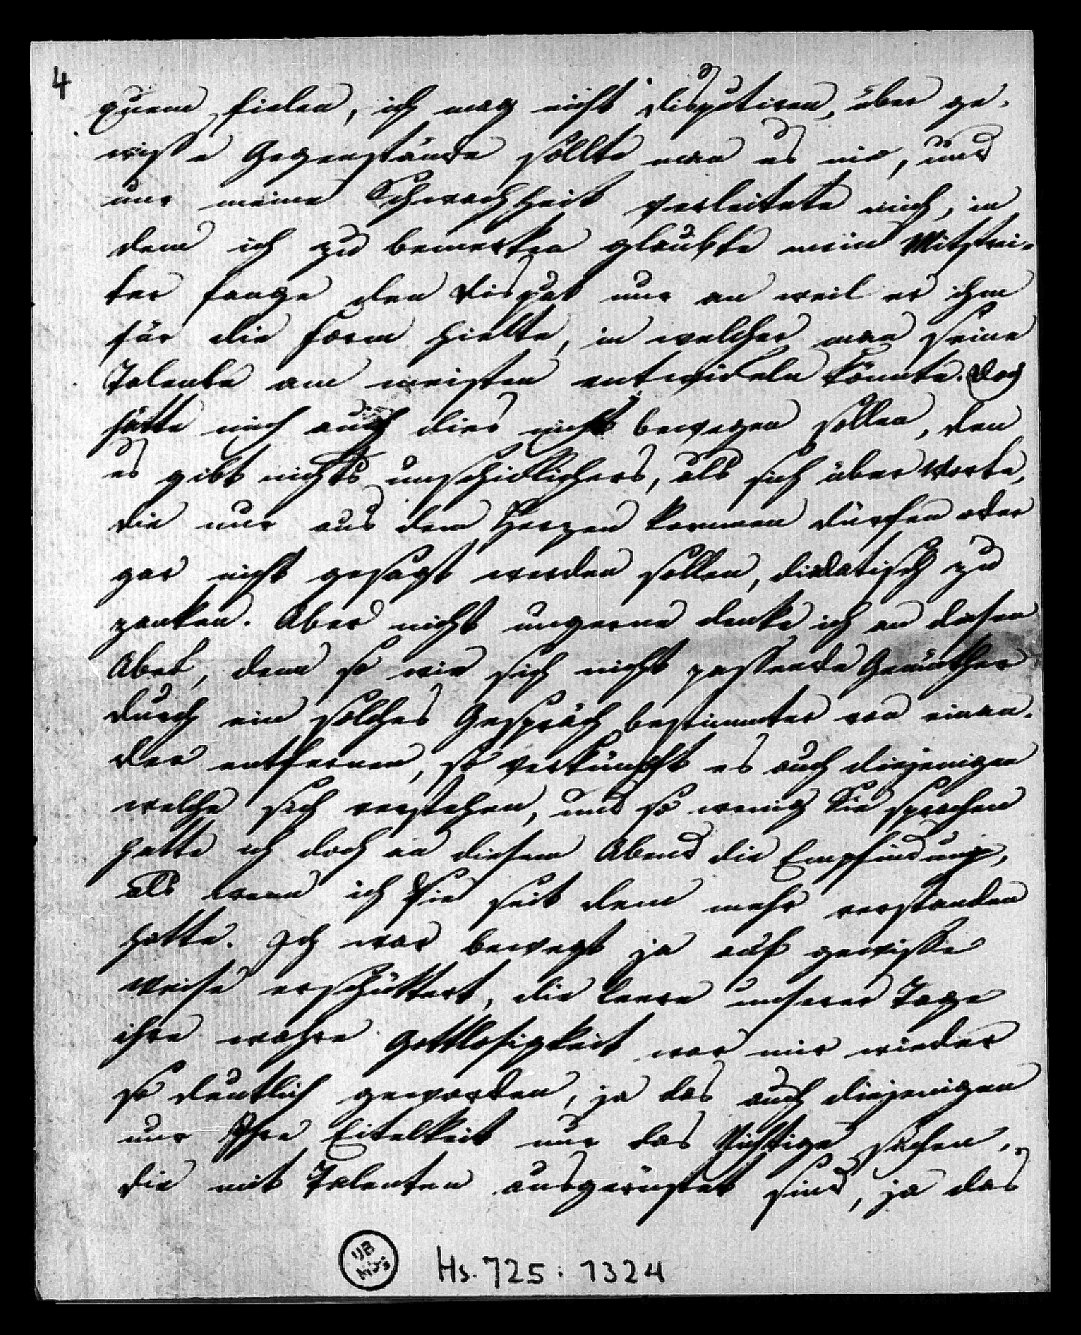 4
quem fielen, ich mag nicht disputiren, über ge-
wisse Gegenstände sollte man es nie, und
nur meine Schwachheit verleitete mich, in
dem ich zu bemerken glaubte mein Mitstrei-
ter fange den Disput nur an weil er ihm
für die Form hielte, in welcher man seine
Talente am meisten entwickeln könnte. Doch
hätte mich auch dies nicht bewegen sollen, den
es gibt nichts unschicklichers, als sich über Worte,
die nur aus dem Herzen kommen dürfen oder
gar nicht gesagt werden sollen, zu
zanken. Aber nicht ungerne denke ich an diesen
Abend, denn so wie sich nicht passende Gemüther
durch ein solches Gespräch bestimmter von einan-
der entfernen, so verknüpft es auch diejenigen
welche sich verstehen, und so wenig Sie sprachen
hatte ich doch an diesem Abend die Empfindung,
als wenn ich Sie seit dem mehr verstanden
hatte. Ich war bewegt ja auf gewisse
weise erschüttert, die leere unserer Tage
ihre wahre Gottlosigkeit war mir wieder
so deutlich geworden, ja das auch diejenigen
nur Ihre Eitelkeit nur das Nichtige suchen,
die mit Talenten ausgerüstet sind, ja das
UB
Hs. 725. 1324